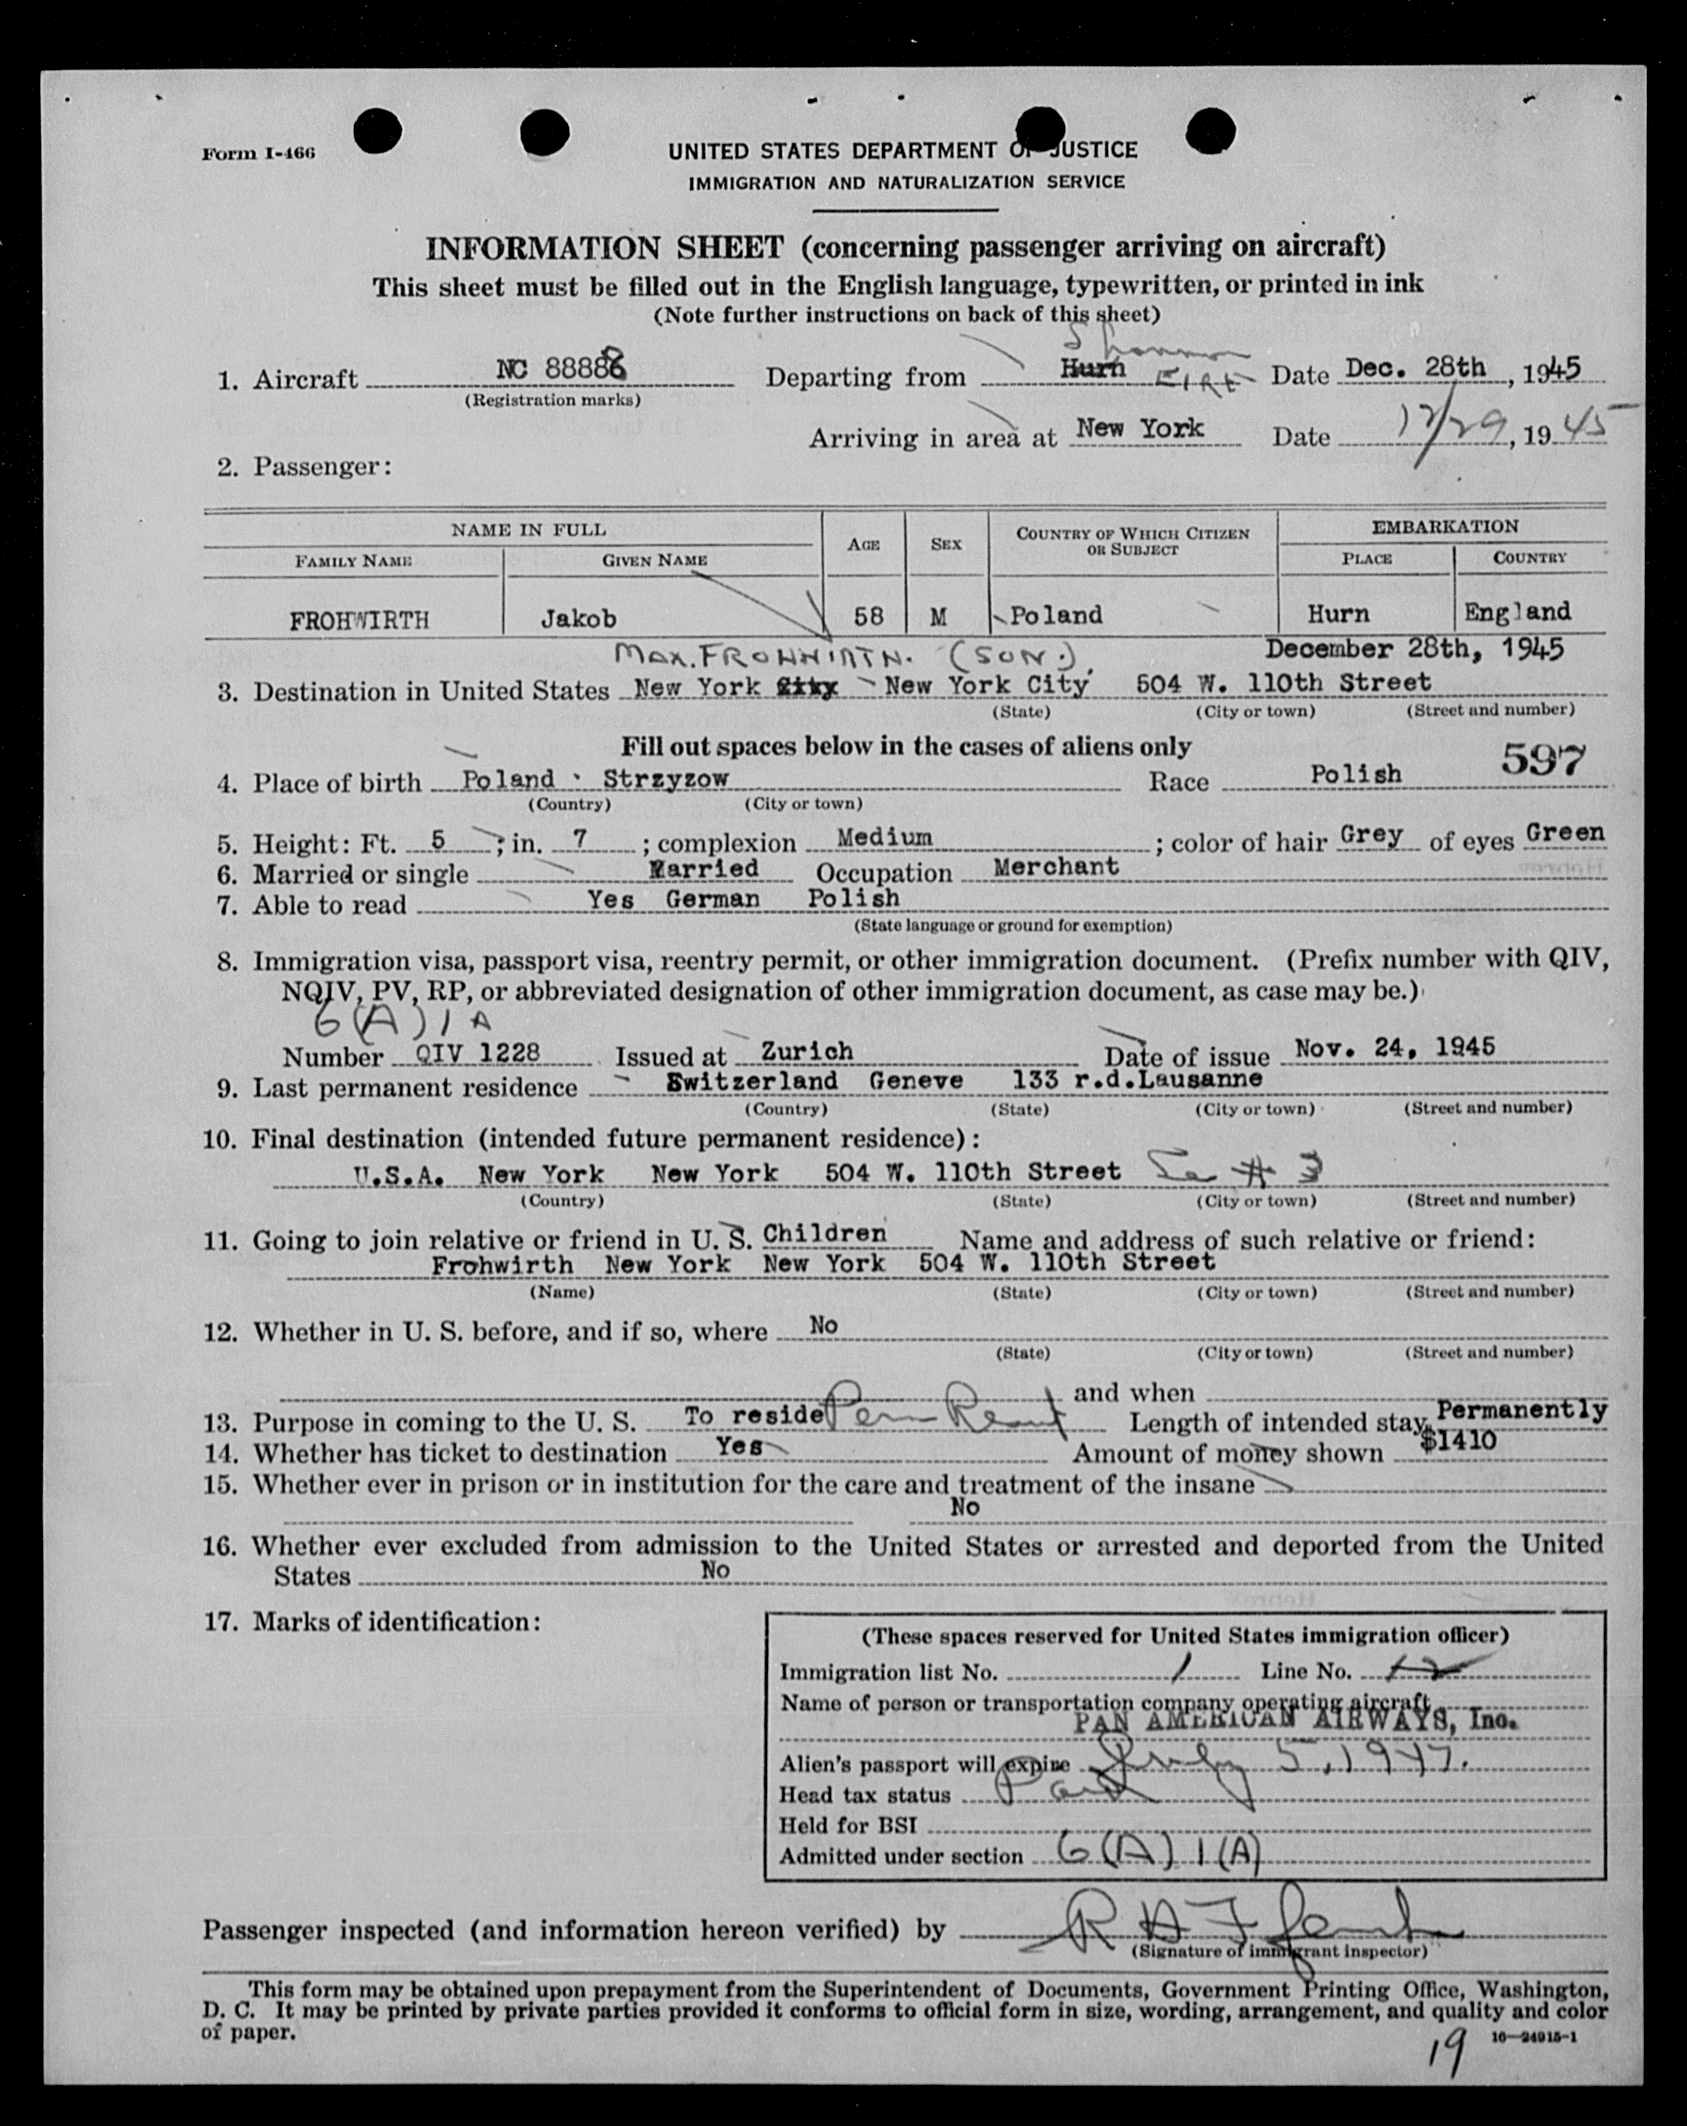 Form I-466
UNITED STATES DEPARTMENT OF JUSTICE
IMMIGRATION AND NATURALIZATION SERVICE
INFORMATION SHEET (concerning passenger arriving on aircraft)
This sheet must be filled out in the English language, typewritten, or printed in ink
(Note further instructions on back of this sheet)
Shannon
1. Aircraft NC 88888 Departing from Hurn EIRE Date Dec. 28th, 1945
(Registration marks)
Arriving in area at New York Date 12/29, 1945
2. Passenger:
NAME IN FULL AGE SEX COUNTRY OF WHICH CITIZEN OR SUBJECT EMBARKATION
FAMILY NAME GIVEN NAME PLACE COUNTRY
FROHWIRTH Jakob 58 M Poland Hurn England
MAX. FROHWIRTH. (SON.) December 28th, 1945
3. Destination in United States New York City New York City 504 W. 110th Street
(State) (City or town) (Street and number)
Fill out spaces below in the cases of aliens only
597
4. Place of birth Poland Strzyzow Race Polish
(Country) (City or town)
5. Height: Ft. 5; in. 7; complexion Medium; color of hair Grey of eyes Green
6. Married or single Married Occupation Merchant
7. Able to read Yes German Polish
(State language or ground for exemption)
8. Immigration visa, passport visa, reentry permit, or other immigration document. (Prefix number with QIV,
NQIV, PV, RP, or abbreviated designation of other immigration document, as case may be.)
6(A)1A
Number QIV 1228 Issued at Zurich Date of issue Nov. 24, 1945
9. Last permanent residence Switzerland Geneve 133 r.d.Lausanne
(Country) (State) (City or town) (Street and number)
10. Final destination (intended future permanent residence):
U.S.A. New York New York 504 W. 110th Street See # 3
(Country) (State) (City or town) (Street and number)
11. Going to join relative or friend in U. S. Children Name and address of such relative or friend:
Frohwirth New York New York 504 W. 110th Street
(Name) (State) (City or town) (Street and number)
12. Whether in U. S. before, and if so, where No
(State) (City or town) (Street and number)
and when
13. Purpose in coming to the U. S. To reside Perm Length of intended stay Permanently
14. Whether has ticket to destination Yes Amount of money shown $1410
15. Whether ever in prison or in institution for the care and treatment of the insane
No
16. Whether ever excluded from admission to the United States or arrested and deported from the United
States No
17. Marks of identification:
(These spaces reserved for United States immigration officer)
Immigration list No. 1 Line No. 12
Name of person or transportation company operating aircraft
PAN AMERICAN AIRWAYS, Inc.
Alien's passport will expire July 5, 1947.
Head tax status Paid
Held for BSI
Admitted under section 6(A) 1(A)
Passenger inspected (and information hereon verified) by
(Signature of immigrant inspector)
This form may be obtained upon prepayment from the Superintendent of Documents, Government Printing Office, Washington,
D. C. It may be printed by private parties provided it conforms to official form in size, wording, arrangement, and quality and color
of paper.
19 16—24915-1